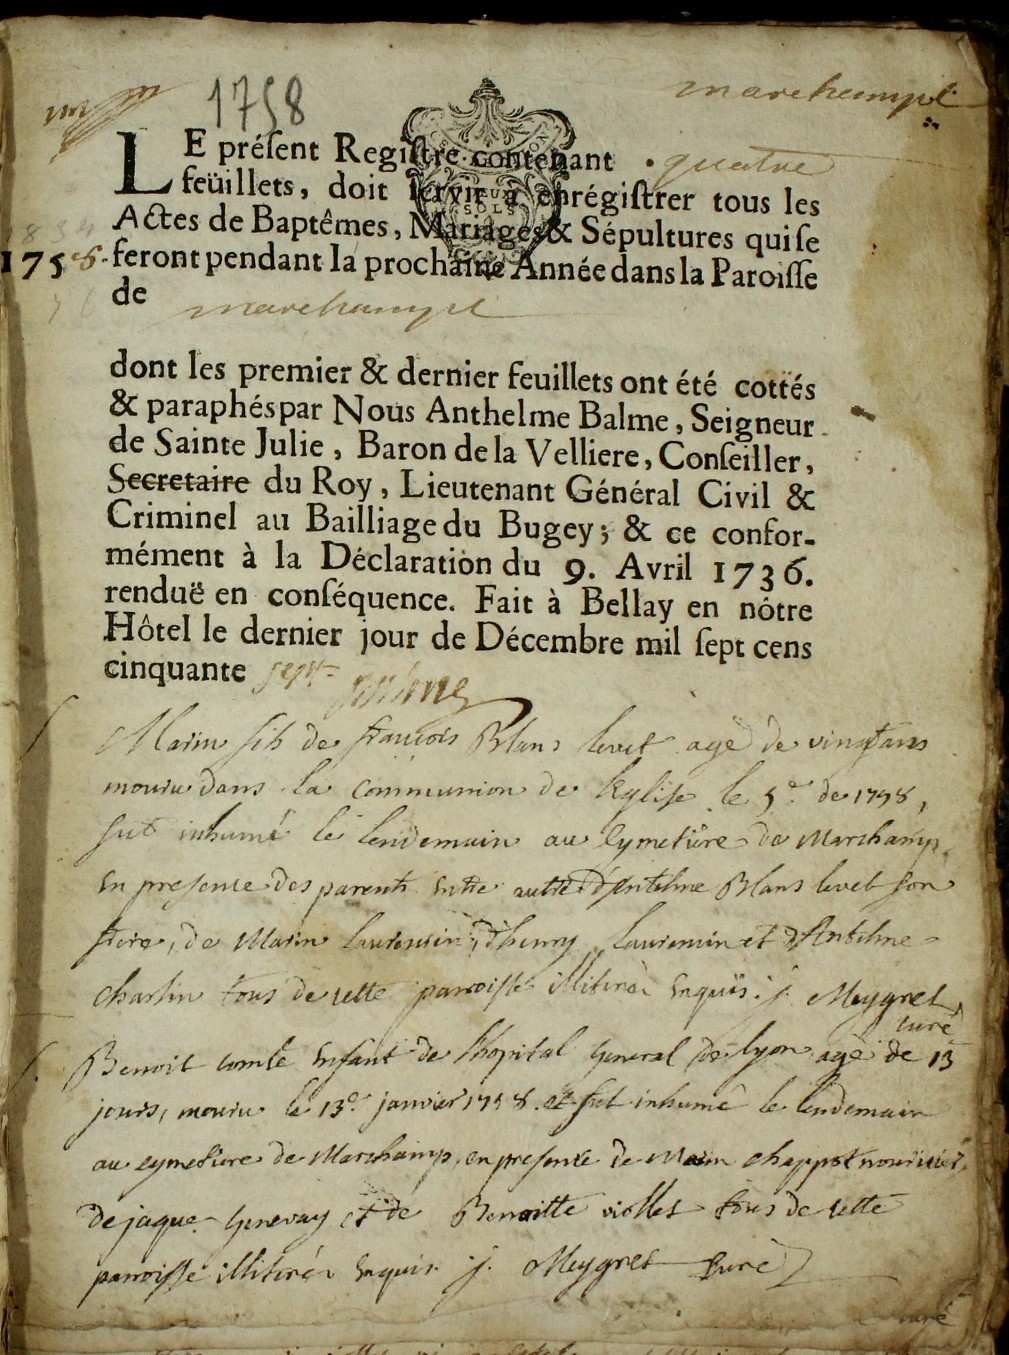 1758
marchampt
LE préſent Regiſtre contenant quatre
feüillets, doit ſervir à enrégiſtrer tous les
Actes de Baptêmes, Mariages & Sépultures qui ſe
1758. feront pendant la prochaine Année dans la Paroiſſe
de marchampt
dont les premier & dernier feuillets ont été cottés
& paraphés par Nous Anthelme Balme, Seigneur
de Sainte Julie, Baron de la Velliere, Conſeiller,
Secretaire du Roy, Lieutenant Général Civil &
Criminel au Bailliage du Bugey; & ce confor-
mément à la Déclaration du 9. Avril 1736.
renduë en conſéquence. Fait à Bellay en nôtre
Hôtel le dernier jour de Décembre mil ſept cens
cinquante sept
Marin fils de francois Blans levet agé de vingt ans
mouru dans la Communion de l'Eglise le 5e. de 1758,
fut inhumé le lendemain au Cymetiere de Marchamp
en presence des parents entre autre d'Antelme Blans levet son
frere, de Marin Laurencin, d'henry Laurencin et d'Antelme
charlin tous de cette parroisse illiterés enquis. j. Meygret,
curé
Benoit comte enfant de l'hopital general de lyon agé de 13
jours, mouru le 13e. janvier 1758. et fut inhumé le lendemain
au cymetiere de Marchamp, en presence de Marin chappot nourricier,
de jaque Genevay et de Benoitte viollet tous de cette
parroisse illiterés enquis. j. Meygret curé
curé